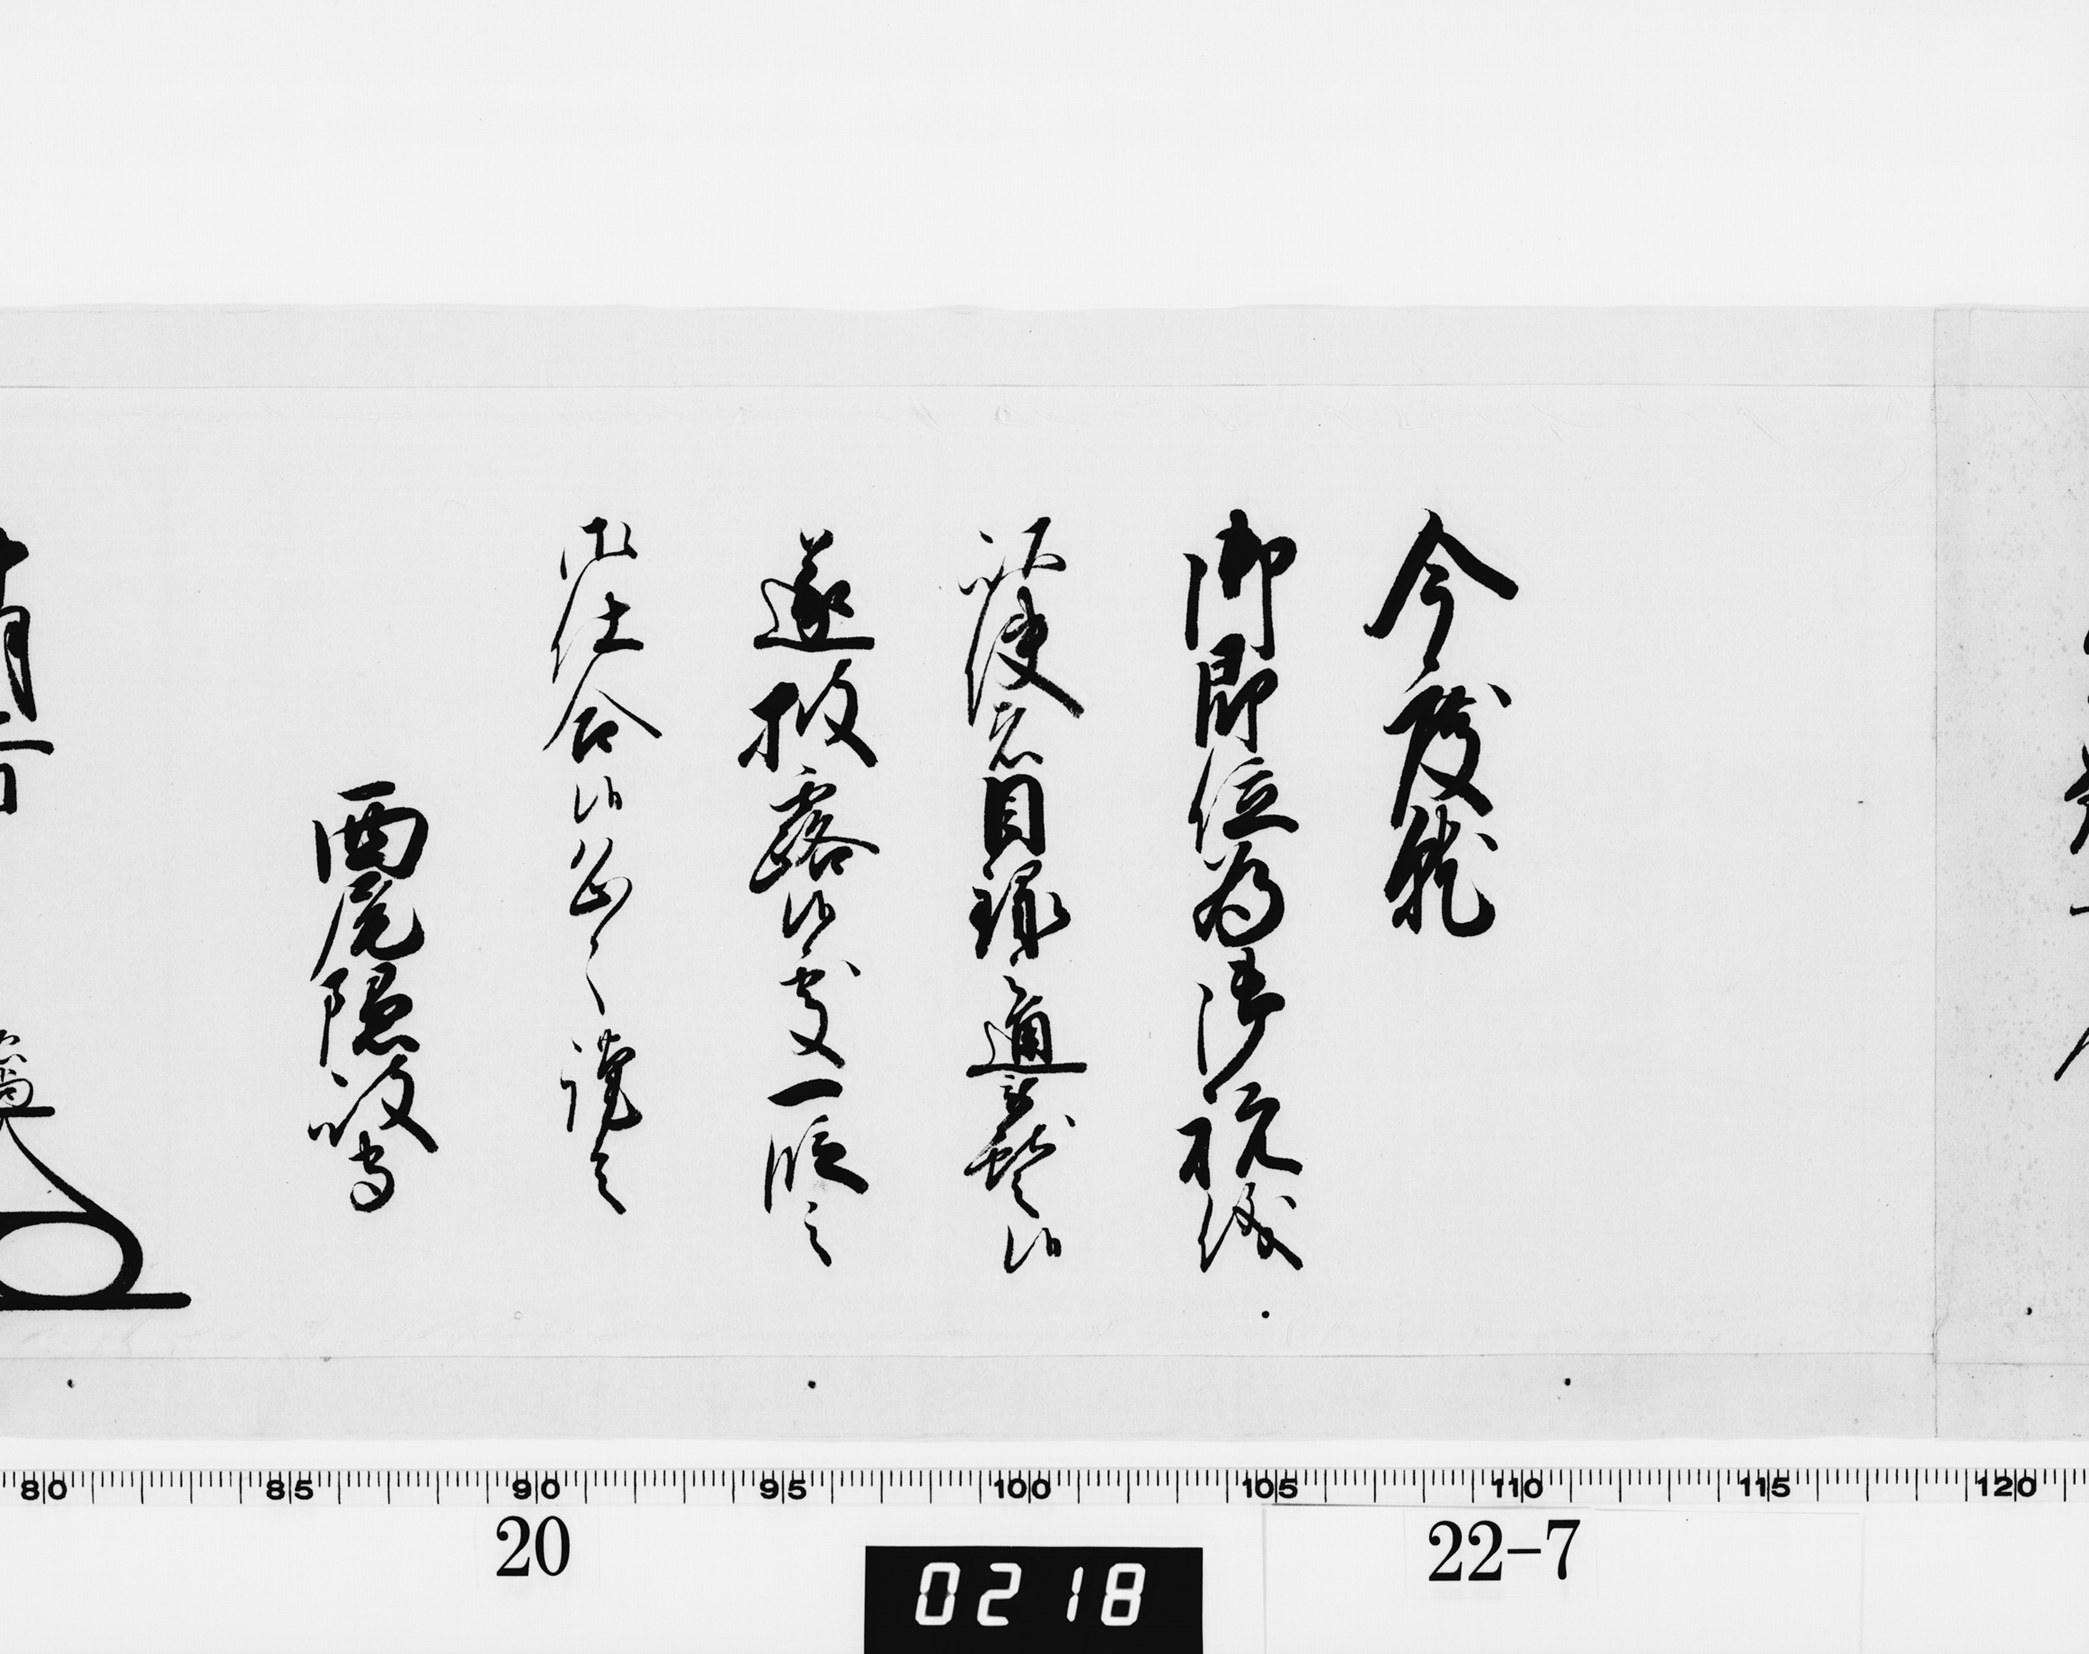 今度就
御即位為御祝儀
以使者目録之通被献候
遂披露候処一段之
御仕合候恐々謹言
西尾隠岐守
80 85 90 95 100 105 110 115 120
20
22-7
0218